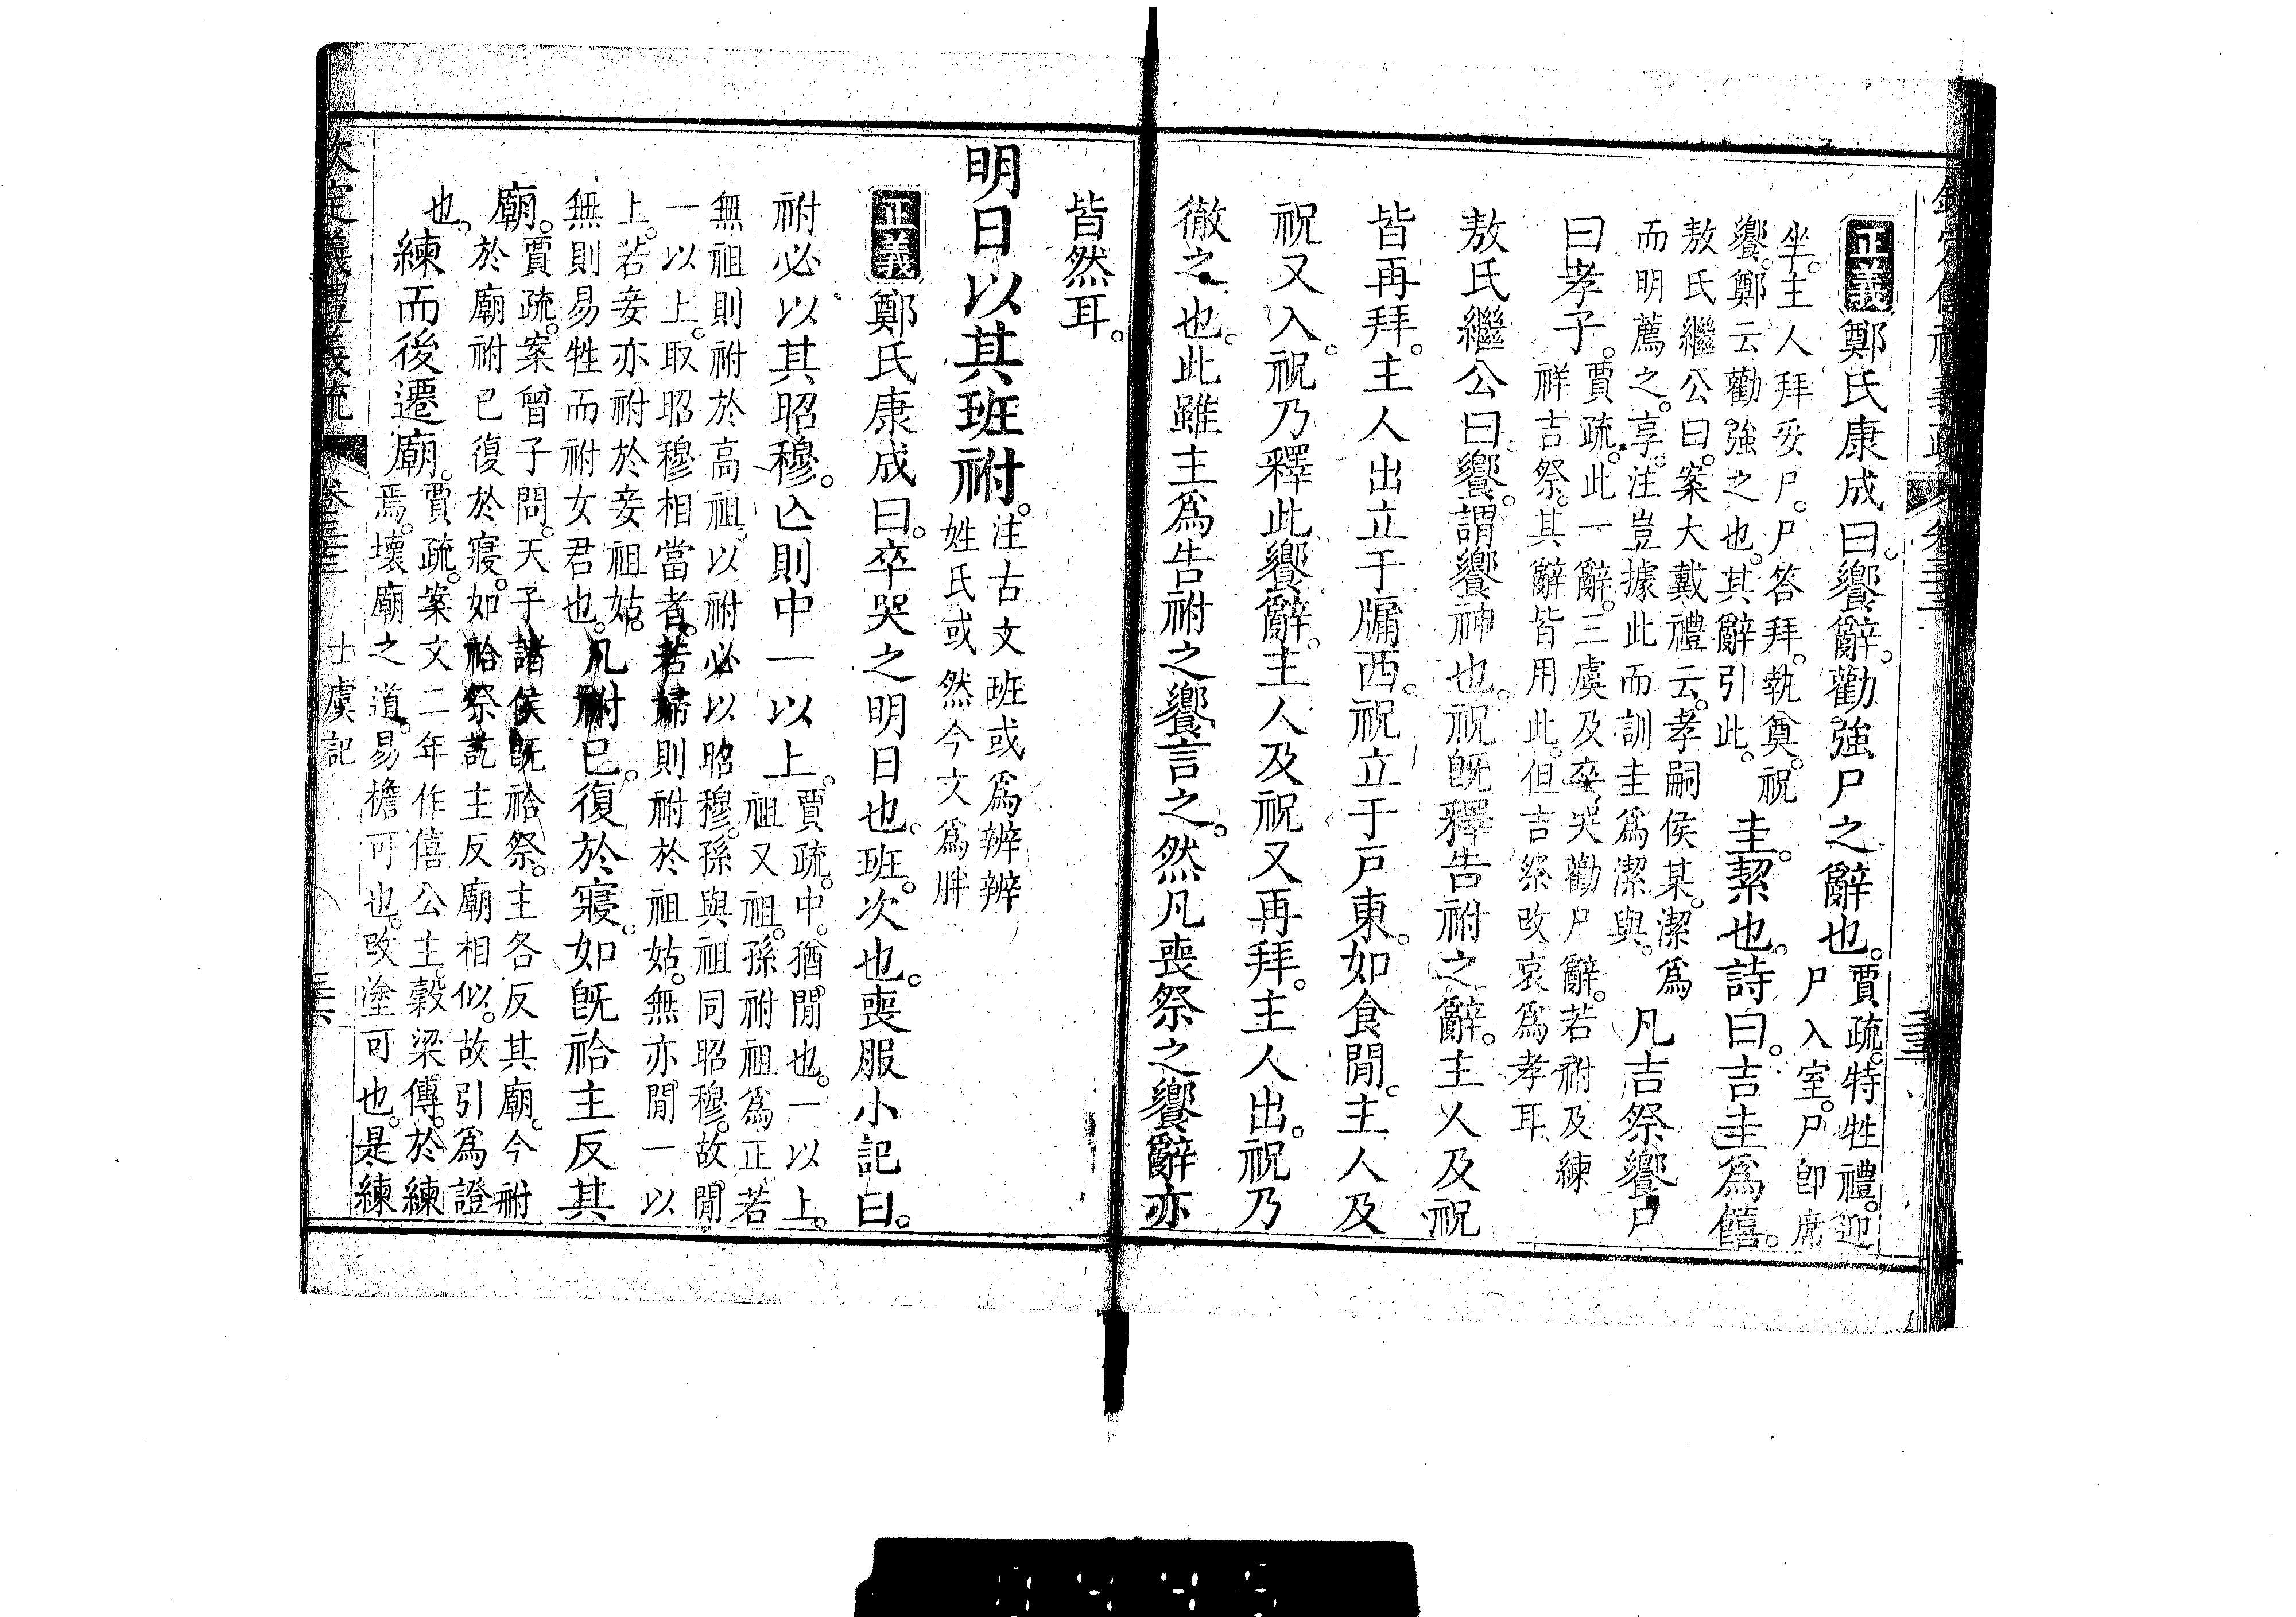 欽定儀禮義疏 卷三十三
正義鄭氏康成曰。饗辭。勸強尸之辭也。賈疏。特牲禮。迎
尸入室。尸卽席
坐。主人拜妥尸。尸答拜。執奠。祝
饗。鄭云勸強之也。其辭引此。圭。絜也。詩曰。吉圭爲饎。
敖氏繼公曰。案大戴禮云。孝嗣侯某。潔爲
而明薦之。享。注豈據此而訓圭爲潔與。凡吉祭饗尸
曰孝子。賈疏。此一辭。三虞及卒哭勸尸辭。若祔及練
祥吉祭。其辭皆用此。但吉祭改哀爲孝耳
敖氏繼公曰。饗。謂饗神也。祝旣釋告祔之辭。主人及祝
皆再拜。主人出立于牖西。祝立于戶東。如食閒。主人及
祝又入。祝乃釋此饗辭。主人及祝又再拜。主人出。祝乃
徹之也。此雖主爲告祔之饗言之。然凡喪祭之饗辭亦
皆然耳。
明日以其班祔。注古文班或爲辨辨
姓氏或然今文爲胖
正義鄭氏康成曰。卒哭之明日也。班。次也。喪服小記曰。
祔必以其昭穆。亾則中一以上。賈疏。中。猶閒也。一以上。
祖又祖。孫祔祖爲正。若
無祖則祔於高祖。以祔必以昭穆。孫與祖同昭穆。故閒
一以上。取昭穆相當者。若婦則祔於祖姑。無亦閒一以
上。若妾亦祔於妾祖姑。
無則易牲而祔女君也。凡祔已。復於寢。如旣祫主反其
廟。賈疏。案曾子問。天子諸侯旣祫祭。主各反其廟。今祔
於廟祔已復於寢。如祫祭訖主反廟相似。故引爲證
也。練而後遷廟。賈疏。案文二年作僖公主。穀梁傳。於練
焉。壞廟之道。易檐可也。改塗可也。是練
欽定儀禮義疏 卷三十三 士虞記